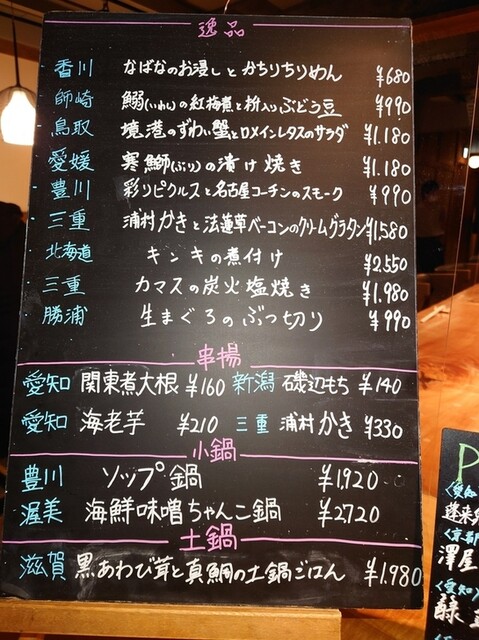 逸品
香川 なばなのお浸しとかちりちりめん ¥680
師崎 鰯(いわし)の紅梅煮と粉入りぶどう豆 ¥990
鳥取 境港のずわい蟹とロメインレタスのサラダ ¥1.180
愛媛 寒鰤(ぶり)の漬け焼き ¥1.180
豊川 彩りピクルスと名古屋コーチンのスモーク ¥990
三重 浦村かきと法蓮草ベーコンのクリームグラタン ¥1,580
北海道 キンキの煮付け ¥2550
三重 カマスの炭火塩焼き ¥1.980
勝浦 生まぐろのぶつ切り ¥990
串揚
愛知 関東煮大根 ¥160 新潟 磯辺もち ¥140
愛知 海老芋 ¥210 三重 浦村かき ¥330
小鍋
豊川 ソップ鍋 ¥1,920
渥美 海鮮味噌ちゃんこ鍋 ¥2720
土鍋
滋賀 黒あわび茸と真鯛の土鍋ごはん ¥1.980
P
<愛知
蓬莱
<京都
澤屋
<愛知>
醸